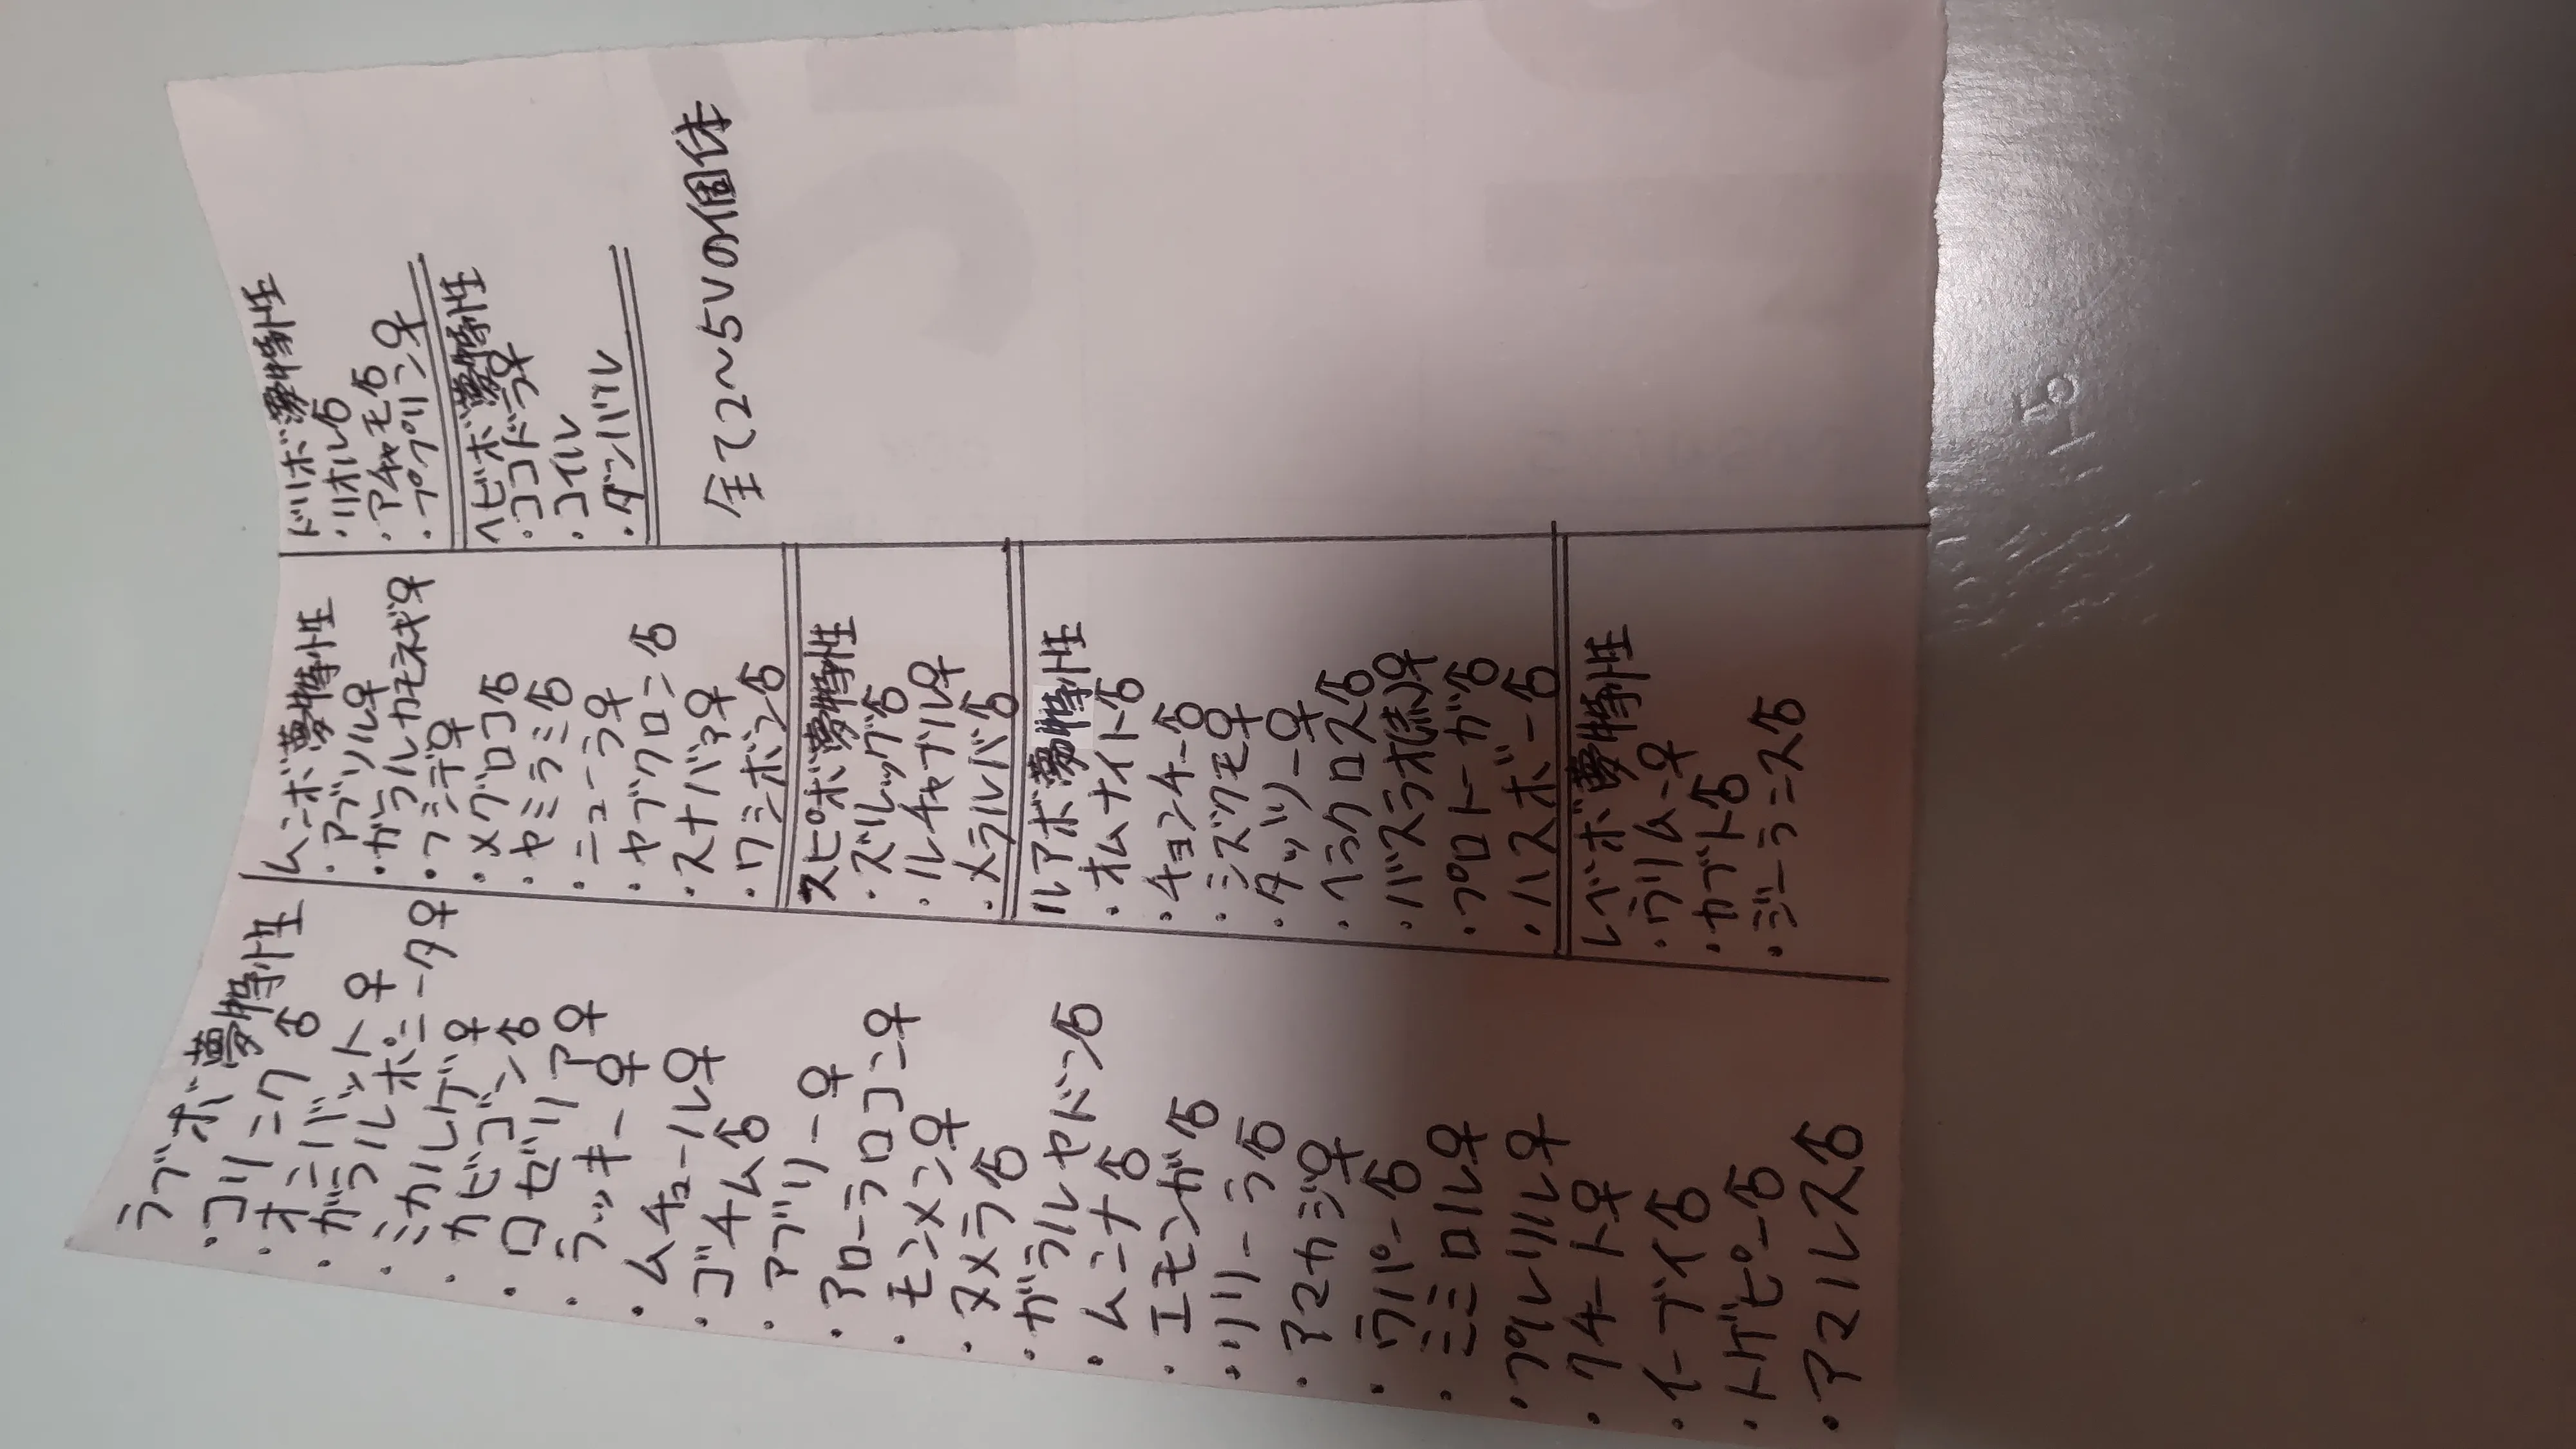 ラブボ夢特性
・コリンク♂
・オンバット♀
・ガラルポニータ♀
・ミカルゲ♀
・カビゴン♂
・ロゼリア♀
・ラッキー♀
・ムチュール♀
・ゴチム♂
・アブリー♀
・アローラロコン♀
・モンメン♀
・ヌメラ♂
・ガラルヤドン♂
・ムンナ♂
・エモンガ♂
・リリーラ♂
・アマカジ♀
・ウパー♂
・ミミロル♀
・プルリル♀
・クチート♀
・イーブイ♂
・トゲピー♂
・アマルス♂
ムンボ夢特性
・アブソル♀
・ガラルカモネギ♀
・フシデ♀
・メグロコ♂
・ヤミラミ♂
・ニューラ♀
・ヤブクロン♂
・スナバァ♀
・ワシボン♂
スピボ夢特性
・ズルッグ♂
・ルチャブル♀
・メラルバ♂
ルアボ夢特性
・オムナイト♂
・チョンチー♂
・シズクモ♀
・タッツー♀
・ヘラクロス♂
・バスラオ(赤)♀
・プロトーガ♂
・ハスボー♂
レベボ夢特性
・ウリムー♀
・カブト♂
・ジーランス♂
ドリボ夢特性
・リオル♂
・アチャモ♂
・ププリン♀
ヘビボ夢特性
・ココドラ♀
・コイル
・ダンバル
全て2〜5Vの個体